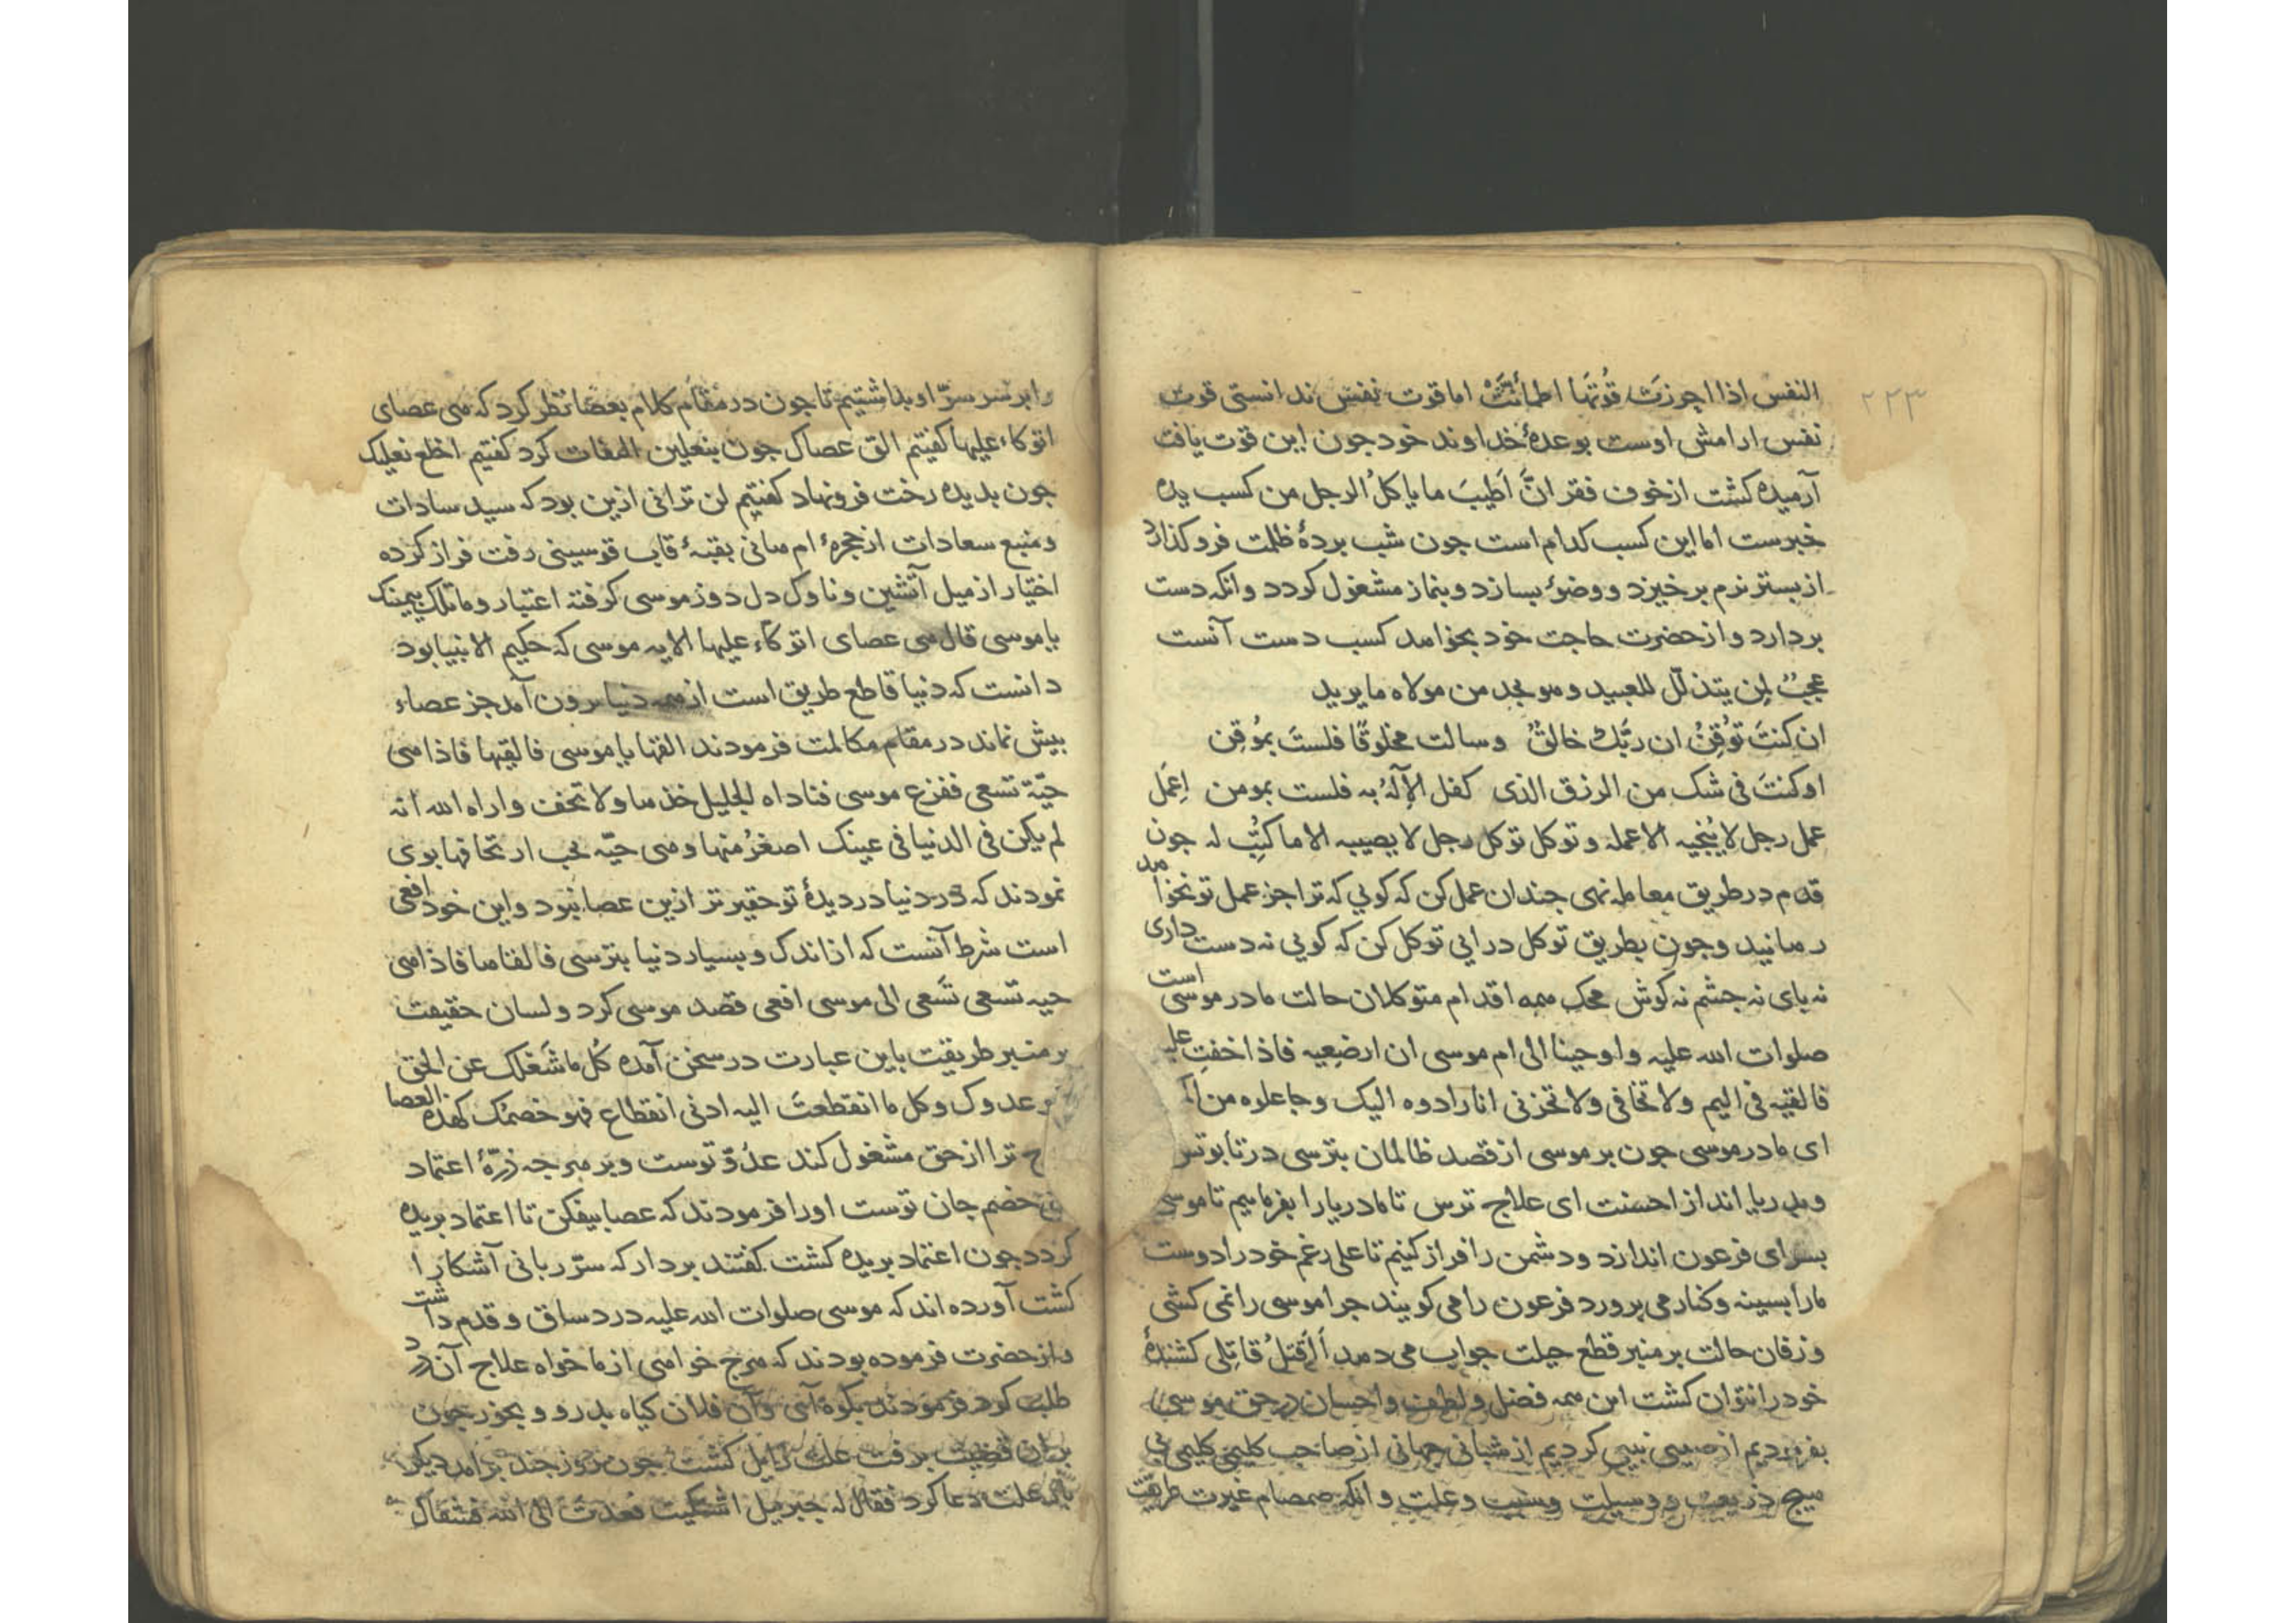 ۲۲۳
النفس اذا احرزت قُوتَها اطمأنّت اما قوت نفس ندانستی قوت
نفس ارامش اوست بوعدهٔ خداوند خود جون این قوت یافت
آرمیده کشت ازخوف فقر انَّ اَطیبَ ما یاکلُ الرجل من کسب یده
خبرست اما این کسب کدام است جون شب بردهٔ ظلمت فروکذارد
از بستر نرم برخیزد و وضؤ بسازد و بنماز مشغول کردد وانکه دست
بردارد و از حضرت حاجت خود بخواهد کسب دست آنست
عجبٌ لمن یتذلّل للعبید وهو یجد من مولاه ما یرید
ان کنتَ تُوقِنُ ان ربَّک خالقٌ وسالت مخلوقًا فلستَ بمُوقِن
اوکنتَ فی شک من الرزق الذی کفل الإلٰهُ به فلست بمومن اِعمَل
عمل رجل لا یُنجیه الا عمله وتوکل توکل رجل لا یصیبه الا ما کُتِب له جون
قدم در طریق معامله نهی جندان عمل کن که کویی که ترا جز عمل تو نخواهد
رهانید وجون بطریق توکل درایی توکل کن که کویی نه دست داری
نه بای نه جشم نه کوش محک همه اقدام متوکلان حالت مادر موسی است
صلوات الله علیه واوحینا الی ام موسی ان ارضعیه فاذا خفتِ علیه
فالقیه فی الیم ولا تخافی ولا تحزنی انا رادوه الیک وجاعلوه من
ای مادر موسی جون بر موسی از قصد ظالمان بترسی در تابوتش
وبدریا انداز احسنت ای علاج ترس تا مادریا را بفرماییم تا موسی
بسرای فرعون اندازد و دشمن را فراز کنیم تا علی رغم خود را دوست
مارا بسینه وکنار می برورد فرعون را می کویند جرا موسی را نمی کشی
وزفان حالت بر منبر قطع حیلت جواب می دهد أأقتلُ قاتِلی کشندهٔ
خود را نتوان کشت این همه فضل ولطف واحسان در حق موسی
بفرمودیم از صبیی نبیی کردیم از شبانی جهانی از صاحب کلیمی کلیمی بی
هیج ذریعت و وسیلت وسبب وعلت وانکه صمصام غیرت طریقت
را بر سر سرّ او بداشتیم تا جون در مقام کلام بعصا نظر کرد که هی عصای
اتوکاء علیها کفتیم الق عصاک جون بنعلین التفات کرد کفتیم اخلع نعلیک
جون بدیده رخت فرو نهاد کفتیم لن ترانی ازین بود که سید سادات
ومنبع سعادات از حجرهٔ ام هانی بقبهٔ قاب قوسینی رفت فراز کرده
اختیار از میل آتشین وناوک دل دوز موسی کرفته اعتبار وما تلک بیمینک
یا موسی قال هی عصای اتوکاء علیها الایه موسی که حکیم الانبیا بود
دانست که دنیا قاطع طریق است از همه دنیا برون آمد جز عصاء
بیش نماند در مقام مکالمت فرمودند القها یا موسی فالقیها فاذا هی
حیّة تسعی ففزع موسی فناداه الجلیل خذها ولا تخف واراه الله انه
لم یکن فی الدنیا فی عینک اصغرُ منها وهی حیّه یجب ان تخافها بوی
نمودند که در دنیا در دیدهٔ تو حقیرتر ازین عصا نبود واین خود افعی
است شرط آنست که از اندک وبسیار دنیا بترسی فالقاها فاذا هی
حیه تسعی تَسعی الی موسی افعی قصد موسی کرد ولسان حقیقت
بر منبر طریقت باین عبارت در سخن آمده کُل ما شَغلک عن الحق
فهو عدوک وکل ما انقطعتَ الیه ادنی انقطاع فهو خصمُک کهذه العصا
ترا از حق مشغول کند عدُوّ توست وبر هرجه ذرّهٔ اعتماد
خصم جان توست اورا فرمودند که عصا بیفکن تا اعتماد بریده
کردد جون اعتماد بریده کشت کفتند بردار که سرّ ربانی آشکارا
کشت آورده اند که موسی صلوات الله علیه درد ساق وقدم داشت
واز حضرت فرموده بودند که هرج خواهی از ما خواه علاج آن درد
طلب کرد فرمودند بکوه آی وآن فلان کیاه بدرو وبخور جون
بران قضیت برفت علت زایل کشت جون روز جند برامد دیکر
علت دعا کرد فقال له جبرئیل اشتکیت فعدت الی الله فشفاک